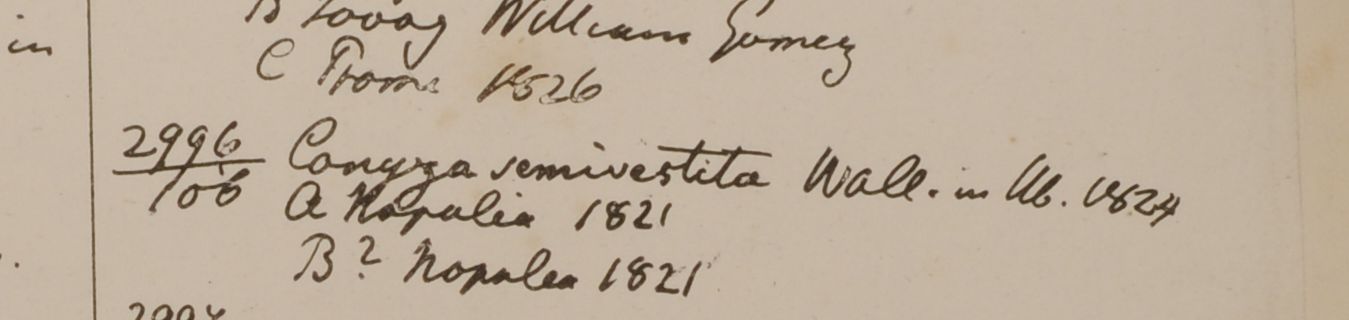 in
B Tavoy William Gomez
C Prome 1826
2996 Conyza semivestita Wall. in Hb. 1824
106
A Napalia 1821
B? Napalea 1821